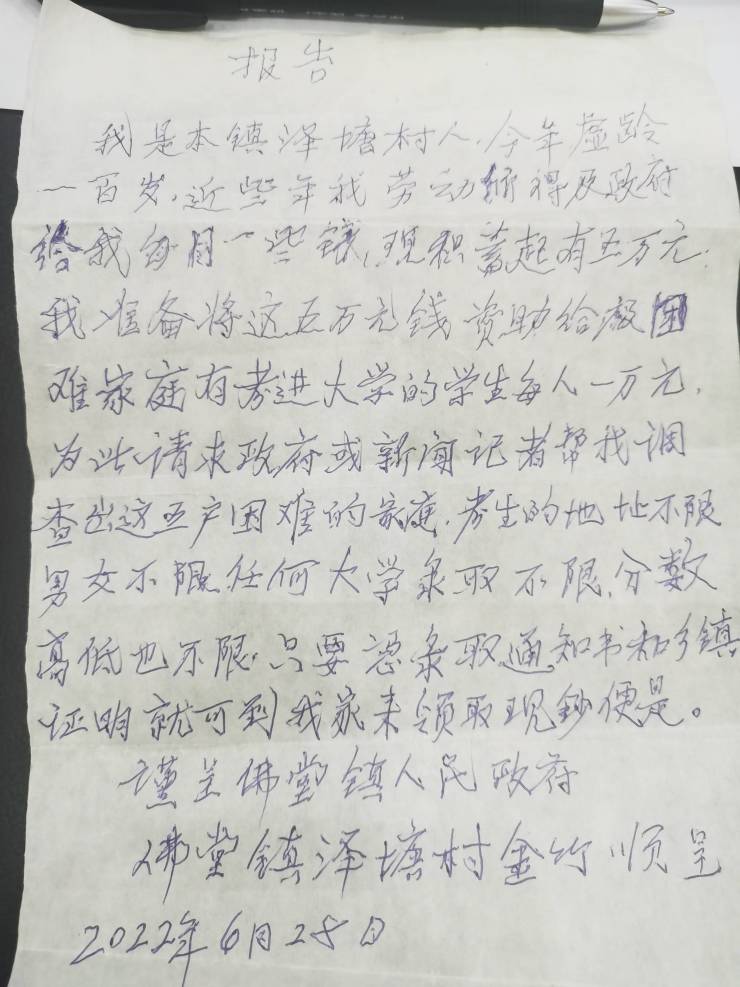 报告
我是本镇泽塘村人，今年虚龄
一百岁，近些年我劳动所得及政府
给我每月一些钱，现积蓄起有五万元，
我准备将这五万元钱资助给应困
难家庭有考进大学的学生每人一万元，
为此请求政府或新闻记者帮我调
查出这五户困难的家庭，考生的地址不限
男女不限任何大学录取不限，分数
高低也不限，只要凭录取通知书和乡镇
证明就可到我家来领取现钞便是。
谨呈佛堂镇人民政府
佛堂镇泽塘村金竹顺呈
2022年6月28日